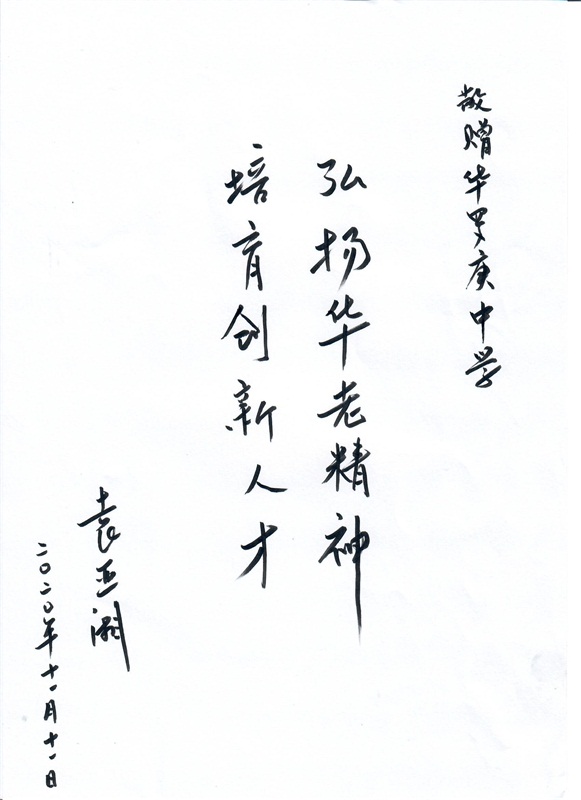 敬赠华罗庚中学
弘扬华老精神
培育创新人才
袁亚湘
二〇二〇年十一月十一日